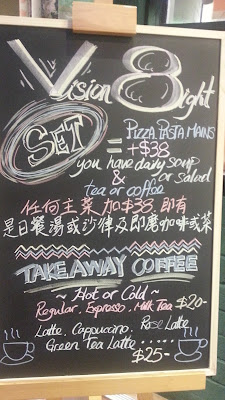 Vision 8ight
SET = PIZZA PASTA MAINS
+$38
you have daily soup or salad
&
tea or coffee
任何主菜加$38即有
是日餐湯或沙律及即磨咖啡或茶
TAKE AWAY COFFEE
~ Hot or Cold ~
Regular. Espresso. Milk Tea $20-
Latte. Cappuccino. Rose Latte
Green Tea Latte ..... $25-